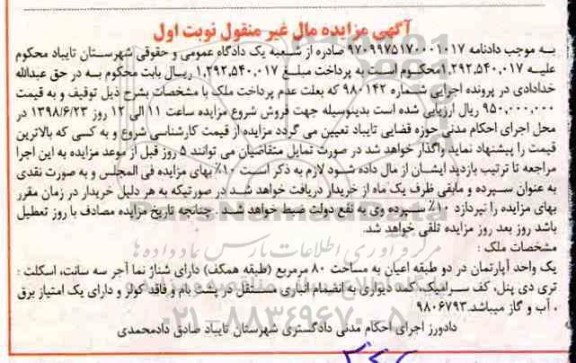 آگهی مزایده مال غیر منقول نوبت اول
به موجب دادنامه ۹۷۰۹۹۷۵۱۷۰۰۰۱۰۱۷ صادره از شعبه یک دادگاه عمومی و حقوقی شهرستان تایباد محکوم
علیه ۱,۲۹۲,۵۴۰,۰۱۷محکوم است به پرداخت مبلغ ۱,۲۹۲,۵۴۰,۰۱۷ ریال بابت محکوم به در حق عبدالله
خدادادی در پرونده اجرایی شماره ۹۸۰۱۴۲ که بعلت عدم پرداخت ملک با مشخصات بشرح ذیل توقیف و به قیمت
۹۵۰,۰۰۰,۰۰۰ ریال ارزیابی شده است بدینوسیله جهت فروش شروع مزایده ساعت ۱۱ الی ۱۲ روز ۱۳۹۸/۶/۲۳ در
محل اجرای احکام مدنی حوزه قضایی تایباد تعیین می گردد مزایده از قیمت کارشناسی شروع و به کسی که بالاترین
قیمت را پیشنهاد نماید واگذار خواهد شد در صورت تمایل متقاضیان می توانند ۵ روز قبل از موعد مزایده به این اجرا
مراجعه تا ترتیب بازدید ایشان از مال داده شود لازم به ذکر است ۱۰٪ بهای مزایده فی المجلس و به صورت نقدی
به عنوان سپرده و مابقی ظرف یک ماه از خریدار دریافت خواهد شد در صورتیکه به هر دلیل خریدار در زمان مقرر
بهای مزایده را نپردازد ۱۰٪ سپرده وی به نفع دولت ضبط خواهد شد . چنانچه تاریخ مزایده مصادف با روز تعطیل
باشد روز بعد روز مزایده تلقی خواهد شد.
مشخصات ملک :
یک واحد آپارتمان در دو طبقه اعیان به مساحت ۸۰ مترمربع (طبقه همکف) دارای شناژ نما آجر سه سانت، اسکلت :
تری دی پنل، کف سرامیک، کمد دیواری به انضمام انباری مستقل در پشت بام و فاقد کولر و دارای یک امتیاز برق
، آب و گاز میباشد.۹۸۰۶۷۹۳
دادورز اجرای احکام مدنی دادگستری شهرستان تایباد صادق دادمحمدی